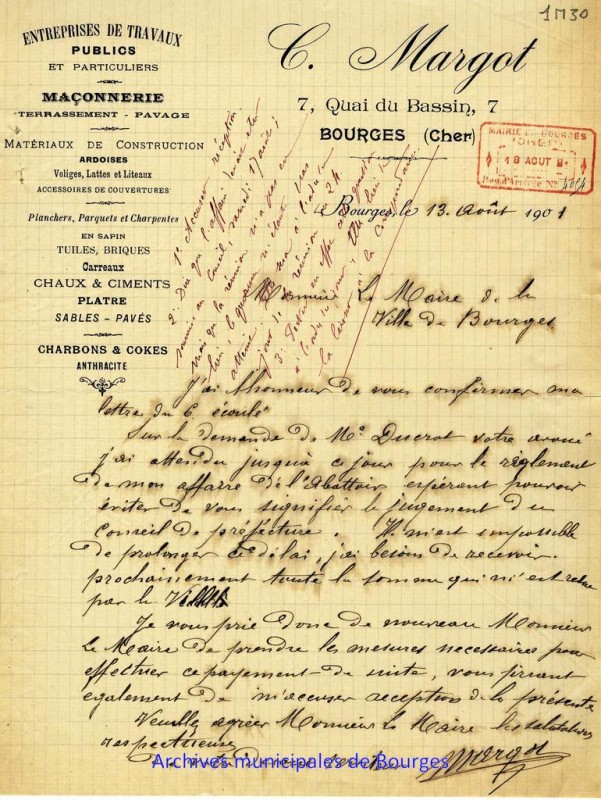 1M30
ENTREPRISES DE TRAVAUX
PUBLICS
ET PARTICULIERS
MAÇONNERIE
TERRASSEMENT - PAVAGE
MATÉRIAUX DE CONSTRUCTION
ARDOISES
Voliges, Lattes et Liteaux
ACCESSOIRES DE COUVERTURES
Planchers, Parquets et Charpentes
EN SAPIN
TUILES, BRIQUES
Carreaux
CHAUX & CIMENTS
PLATRE
SABLES - PAVÉS
CHARBONS & COKES
ANTHRACITE
C. Margot
7, Quai du Bassin, 7
BOURGES (Cher)
MAIRIE DE BOURGES
AOUT
Bourges, le 13 Août 1901
1° Accuser réception.
2° Dire que l'affaire
Conseil, samedi
mais la réunion n'a pas eu
lieu, le quorum n'étant pas
atteint.
jour de réunion 24.
Monsieur Le Maire de la
Ville de Bourges
J'ai l'honneur de vous confirmer ma
lettre du 6 écoulé
Sur la demande de Me Ducrot votre avoué
j'ai attendu jusqu'à ce jour pour le règlement
de mon affaire de l'Abattoir espérant pouvoir
éviter de vous signifier le jugement du
Conseil de préfecture. Il m'est impossible
de prolonger ce délai, j'ai besoin de recevoir
prochainement toute la somme qui m'est
par la Ville
Je vous prie donc de nouveau Monsieur
Le Maire de prendre les mesures nécessaires pour
effectuer ce payement de suite, vous priant
également de m'accuser réception de la présente
Veuillez agréer Monsieur Le Maire les salutations
respectueuses
De votre
Margot
Archives municipales de Bourges